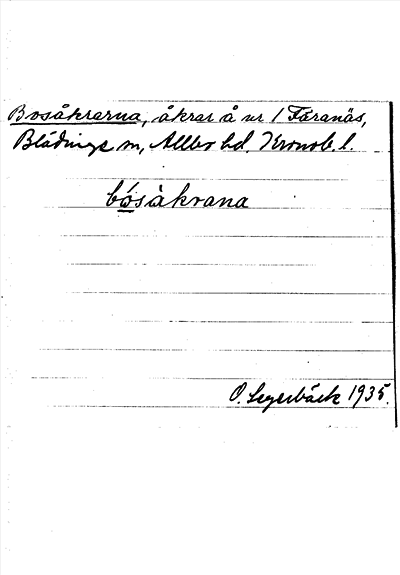 Bosåkrarna, åkrar å nr 1 Faranäs,
Blädinge sn, Allbo hd, Kronob. l.
bósàkrana
O. Segerbäck 1935.